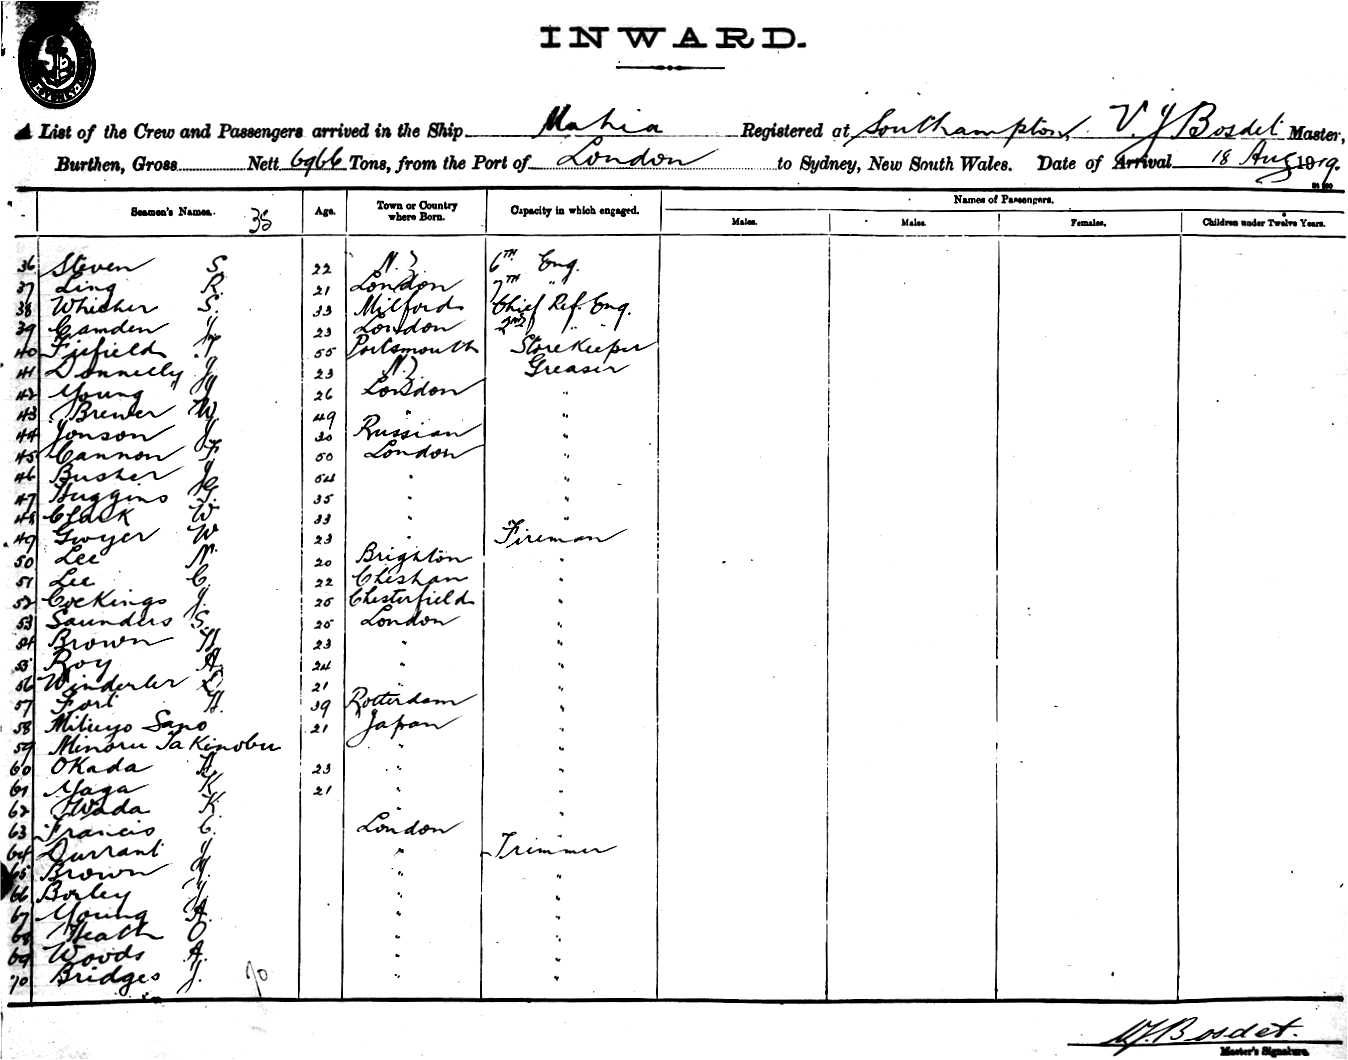 INWARD.
List of the Crew and Passengers arrived in the Ship Mahia Registered at Southampton, V. J Bosdet Master,
Burthen, Gross Nett 6966 Tons, from the Port of London to Sydney, New South Wales. Date of Arrival 18 Aug 1919.
Seamen's Names. 35 Age. Town or Country where Born. Capacity in which engaged. Names of Passengers.
Males. Males. Females. Children under Twelve Years.
36 Steven S. 22 N.Z 6TH Eng.
37 Ling R. 21 London 7TH " "
38 Whicher S. 33 Milford Chief Ref. Eng.
39 Camden J 23 London 2nd " "
40 Fifield 55 Portsmouth StoreKeeper
41 Donnelly J 23 N.Z Greaser
42 Young 26 London "
43 Brewer W. 49 " "
44 Jonson J. 30 Russian "
45 Cannon F 50 London "
46 Busher J 54 " "
47 Huggins G. 35 " "
48 Clark W 33 " "
49 Gwyer W 23 " Fireman
50 Lee N. 20 Brighton "
51 Lee C. 22 Chesham "
52 Cockings J. 25 Chesterfield "
53 Saunders S. 25 London "
54 Brown H 23 " "
55 Roy A. 24 " "
56 Winderler L. 21 " "
57 Fort H. 39 Rotterdam "
58 Mitsuyo Sano 21 Japan "
59 Minoru Takinobu " "
60 Okada 23 " "
61 Maga K 21 " "
62 Wada K. " "
63 Francis C. London "
64 Durrant J " Trimmer
65 Brown " "
66 Borley J " "
67 Young A. " "
68 Heath O " "
69 Woods A. " "
70 Bridges J. 70 " "
V.J. Bosdet.
Master's Signature.